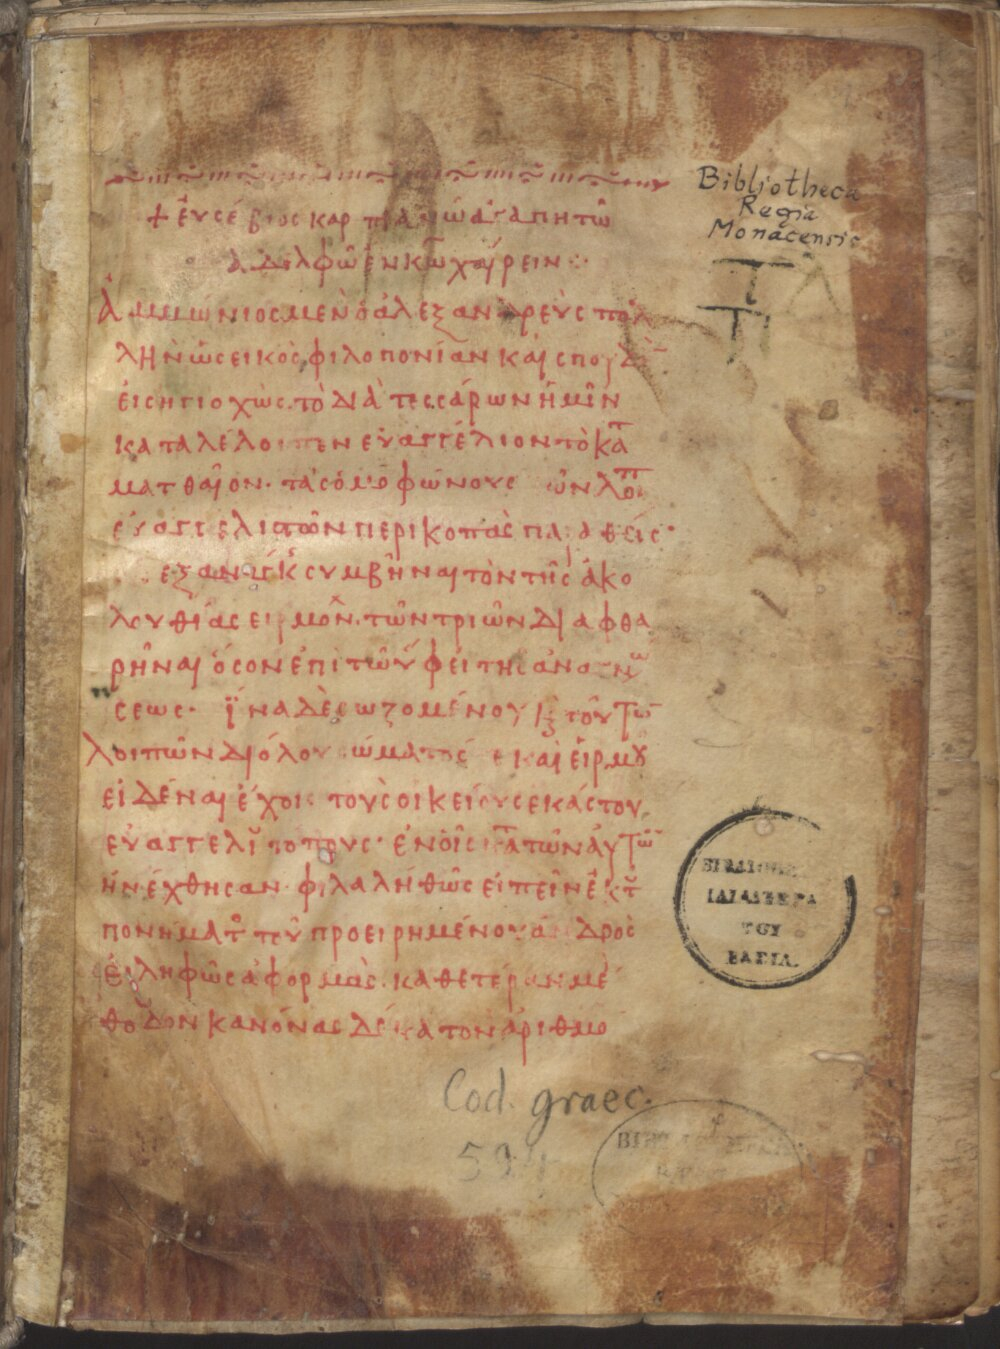 + εὐσέβιος καρπιανῶ ἀγαπητῶ
ἀδελφῶ ἐν κω χαίρειν
Ἀμμώνιος μὲν ὁ ἀλεξανδρεὺς πολ
λὴν ὡς εικὸς φιλοπονίαν καὶ σπουδὴ
εἰσηγιοχὼς τὸ διὰ τεσσάρων ἡμῖν
καταλέλοιπεν εὐαγγέλιον τὸ κατ
ματθαῖον· τὰς ὁμοφώνους
εὐαγγελιστῶν περικοπὰς
συμβῆναι τὸν τῆς ἀκο
λουθίας ειρμὸν τῶν τριῶν διαφθα
ρῆναι ὅσον ἐπὶ τῶ ὕφει τῆς ἀναγνώ
σεως· ἵνα δὲ σωζομένου καὶ τοῦ τῶν
λοιπῶν δι όλου σώματός τε καὶ εἱρμοῦ
εἰδέναι ἔχοις τοὺς οικείους εκάστου
εὐαγγελιστοῦ τόπους· ἐν οἷς κατα τῶν αὐτῶν
ἠνέχθησαν φιλαλήθως εἰπεῖν ἐκ τοῦ
πονήματος τοῦ προειρημένου ἀνδρὸς
εἰληφὼς ἀφορμὰς· καθ ετέραν μέ
θοδον κανόνας δέκα τον ἀριθμὸ
Bibliotheca
Regia
Monacensis
ΤΟΥ
ΒΑΣΙΛ.
Cod. graec.
594